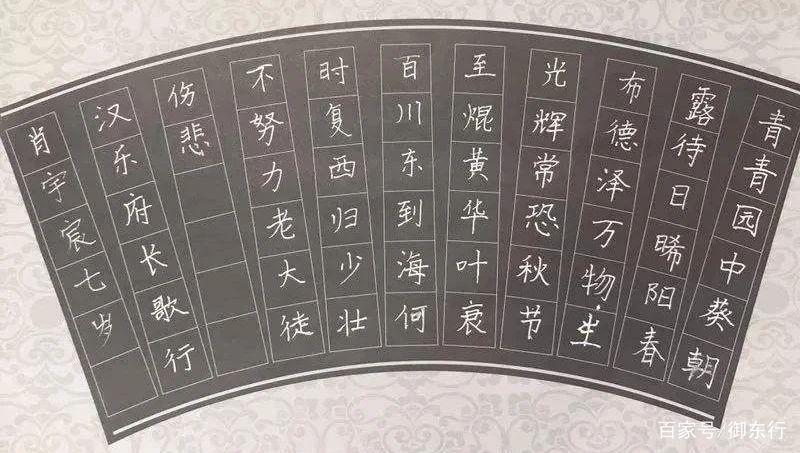 青青园中葵朝
露待日晞阳春
布德泽万物生
光辉常恐秋节
至焜黄华叶衰
百川东到海何
时复西归少壮
不努力老大徒
伤悲
汉乐府长歌行
肖宇宸七岁
百家号/御东行